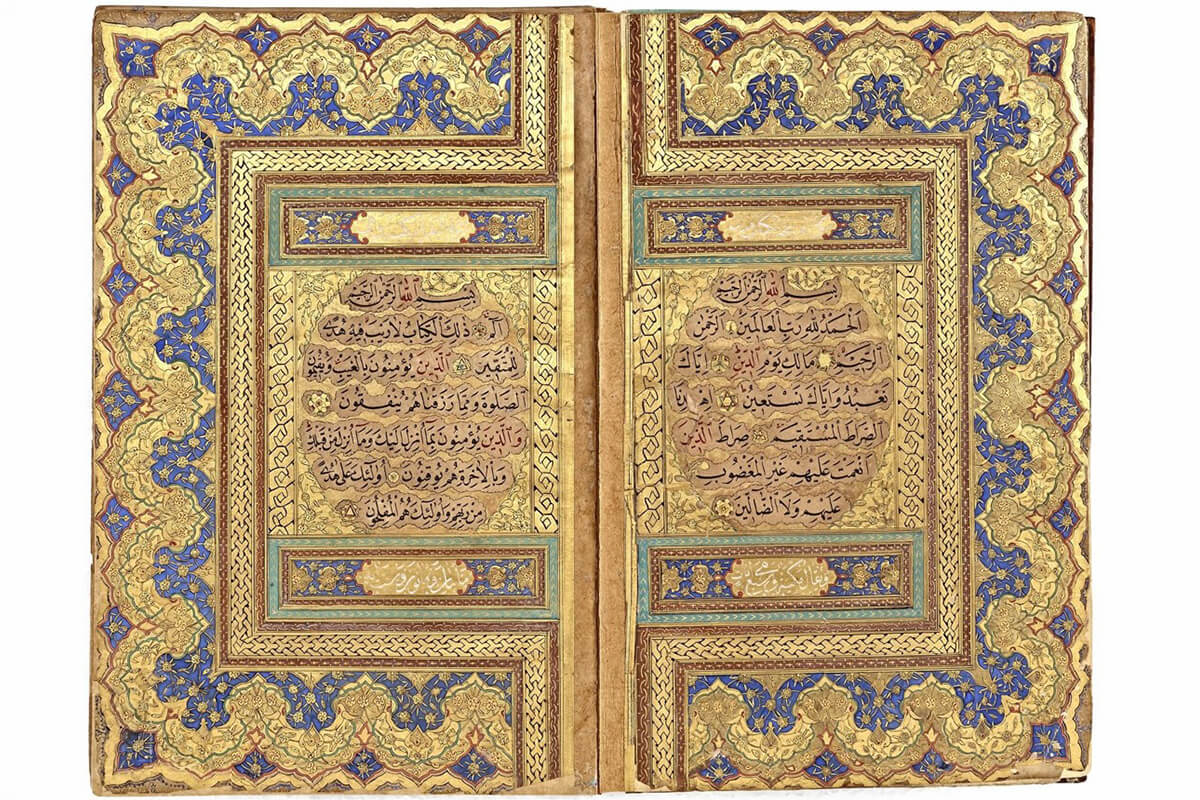 بِسْمِ اللهِ الرَّحْمٰنِ الرَّحِيمِ
اَلْحَمْدُ لِلّٰهِ رَبِّ الْعَالَمِينَ الرَّحْمٰنِ
الرَّحِيمِ مَالِكِ يَوْمِ الدِّينِ اِيَّاكَ
نَعْبُدُ وَاِيَّاكَ نَسْتَعِينُ اِهْدِنَا
الصِّرَاطَ الْمُسْتَقِيمَ صِرَاطَ الَّذِينَ
اَنْعَمْتَ عَلَيْهِمْ غَيْرِ الْمَغْضُوبِ
عَلَيْهِمْ وَلَا الضَّالِّينَ
بِسْمِ اللهِ الرَّحْمٰنِ الرَّحِيمِ
الٓمٓ ذٰلِكَ الْكِتَابُ لَا رَيْبَ فِيهِ هُدًى
لِلْمُتَّقِينَ الَّذِينَ يُؤْمِنُونَ بِالْغَيْبِ وَيُقِيمُونَ
الصَّلٰوةَ وَمِمَّا رَزَقْنَاهُمْ يُنْفِقُونَ
وَالَّذِينَ يُؤْمِنُونَ بِمَا اُنْزِلَ اِلَيْكَ وَمَا اُنْزِلَ مِنْ قَبْلِكَ
وَبِالْاٰخِرَةِ هُمْ يُوقِنُونَ اُولٰئِكَ عَلٰى هُدًى
مِنْ رَبِّهِمْ وَاُولٰئِكَ هُمُ الْمُفْلِحُونَ